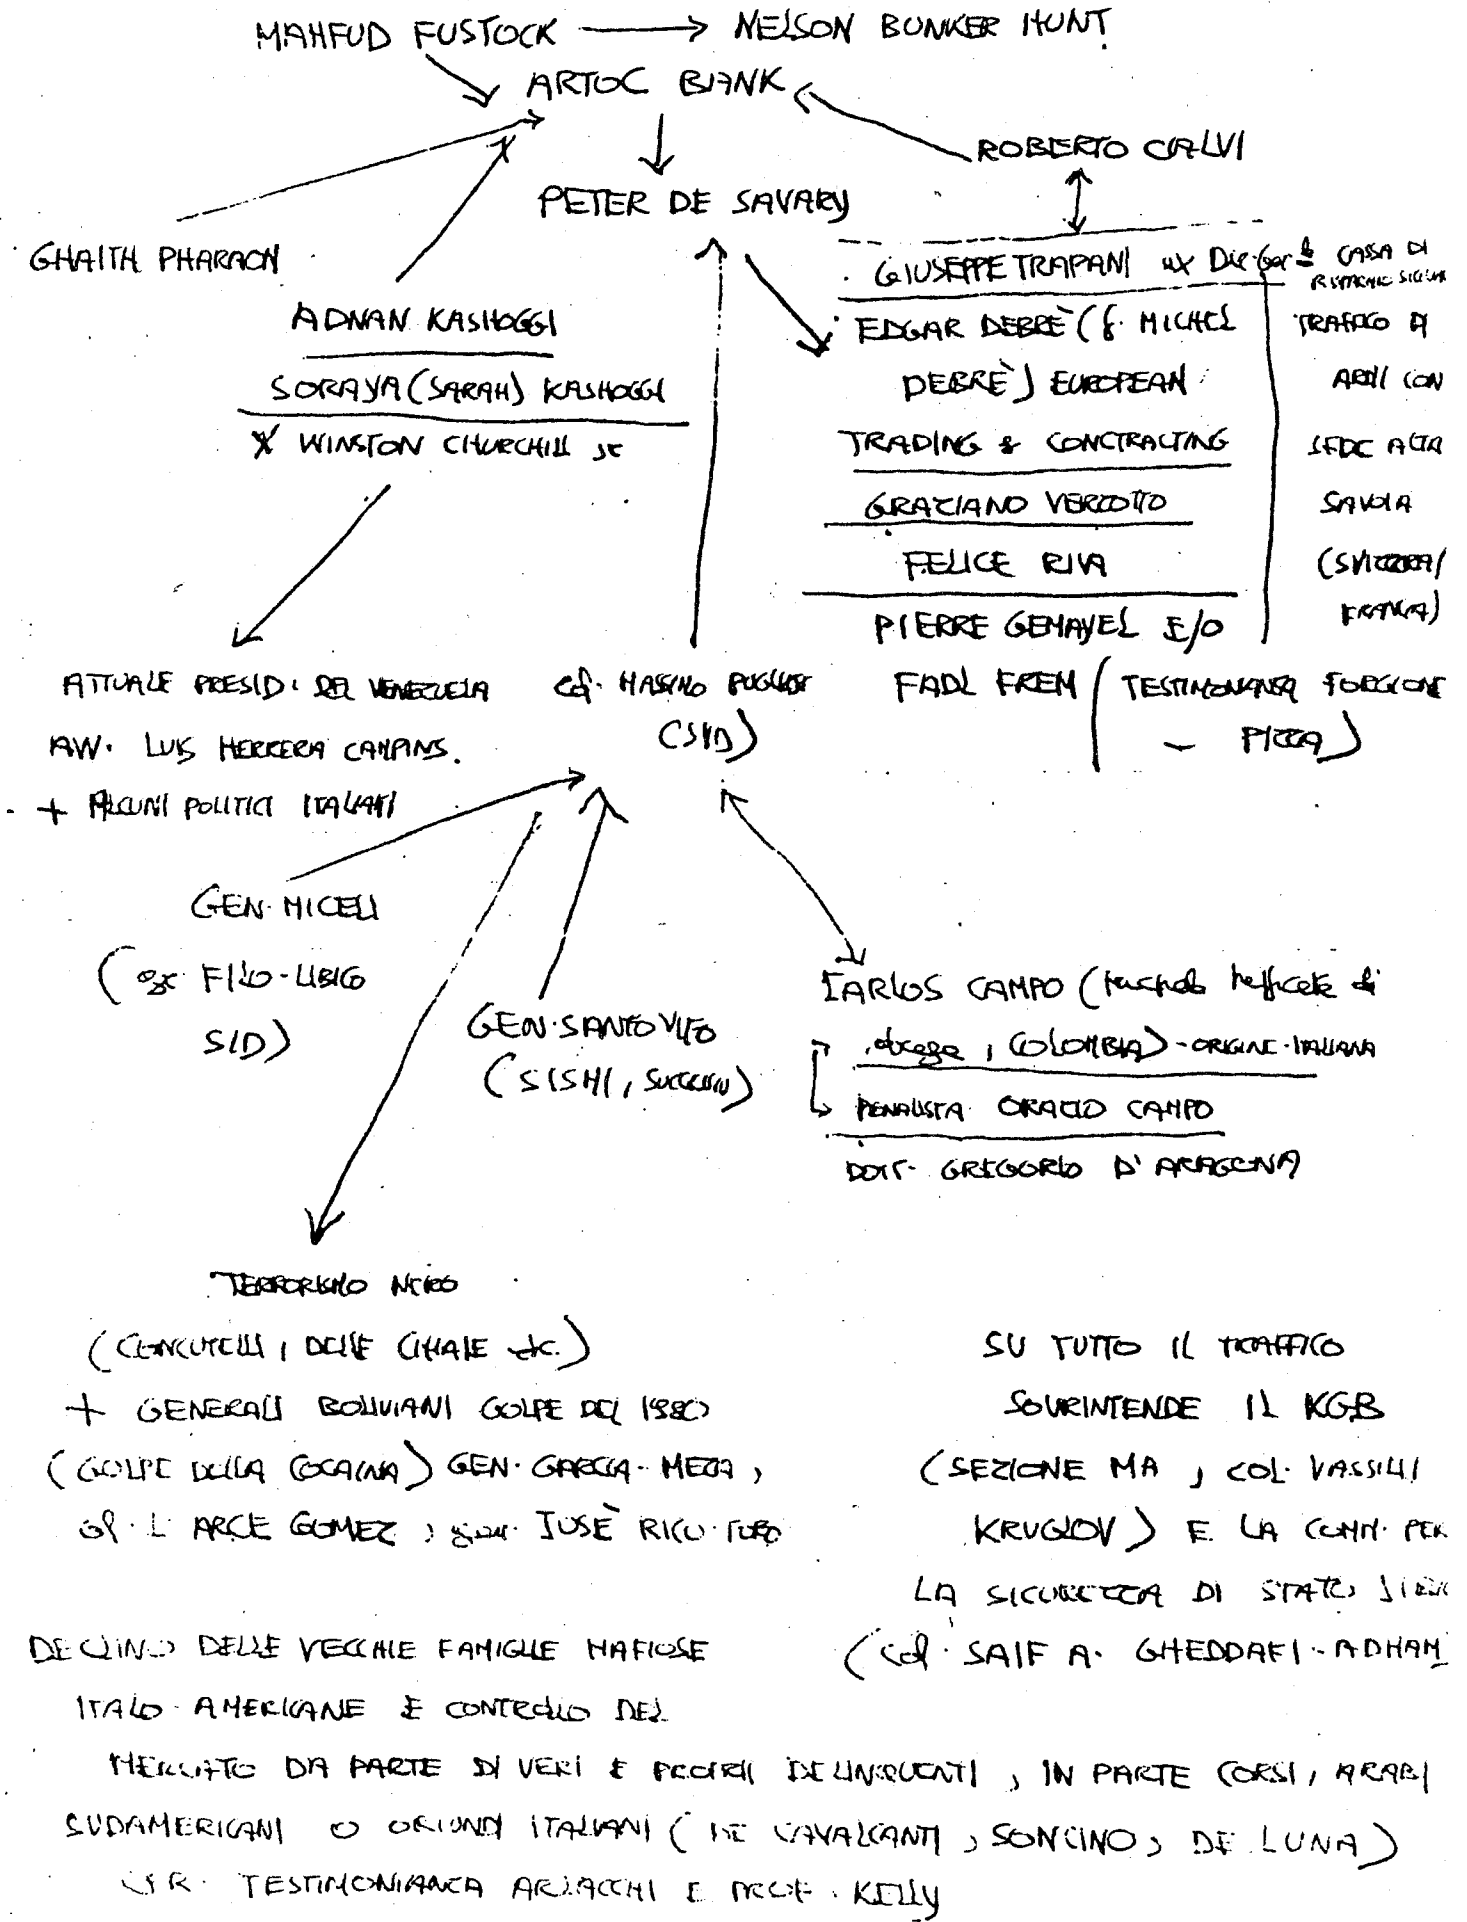 MAHFUD FUSTOCK → NELSON BUNKER HUNT
ARTOC BANK
ROBERTO CALVI
PETER DE SAVARY
GHAITH PHARAON
GIUSEPPE TRAPANI ex Dir. Gen. CASSA DI
RISPARMIO
ADNAN KASHOGGI
SORAYA (SARAH) KASHOGGI
X WINSTON CHURCHILL jr
EDGAR DEBRÈ (f. MICHEL
DEBRÈ) EUROPEAN
TRADING & CONCTRACTING
GRAZIANO VERZOTTO
FELICE RIVA
PIERRE GEMAYEL E/O
FADL FREM
TRAFFICO DI
ARMI CON
SEDE ALTA
SAVOIA
(SVIZZERA/
FRANCIA)
(TESTIMONIANZA FORGIONE
– PIZZA)
ATTUALE PRESID. DEL VENEZUELA
AVV. LUIS HERRERA CAMPINS.
+ ALCUNI POLITICI ITALIANI
Col. MASSIMO PUGLIESE
(SID)
GEN. MICELI
(ex FILO-LIBICO
SID)
GEN. SANTOVITO
(SISMI,
CARLOS CAMPO (
, COLOMBIA) - ORIGINE ITALIANA
PENALISTA ORAZIO CAMPO
DOTT. GREGORIO D'ARAGONA
TERRORISMO NERO
(CONCUTELLI, DELLE CHIAIE etc.)
+ GENERALI BOLIVIANI GOLPE DEL 1980
(GOLPE DELLA COCAINA) GEN. GARCIA-MEZA,
col. L ARCE GOMEZ, gen. JOSÈ RICO TORO
SU TUTTO IL TRAFFICO
SOVRINTENDE IL KGB
(SEZIONE MA, COL. VASSILI
KRUGLOV) E LA COMM. PER
LA SICUREZZA DI STATO
(Col. SAIF A. GHEDDAFI-ADHAM
DECLINO DELLE VECCHIE FAMIGLIE MAFIOSE
ITALO-AMERICANE E CONTROLLO DEL
MERCATO DA PARTE DI VERI E PROPRI DELINQUENTI, IN PARTE CORSI, ARABI
SUDAMERICANI O ORIUNDI ITALIANI (DE CAVALCANTI, SONCINO, DE LUNA)
CFR. TESTIMONIANZA ARLACCHI E PROF. KELLY